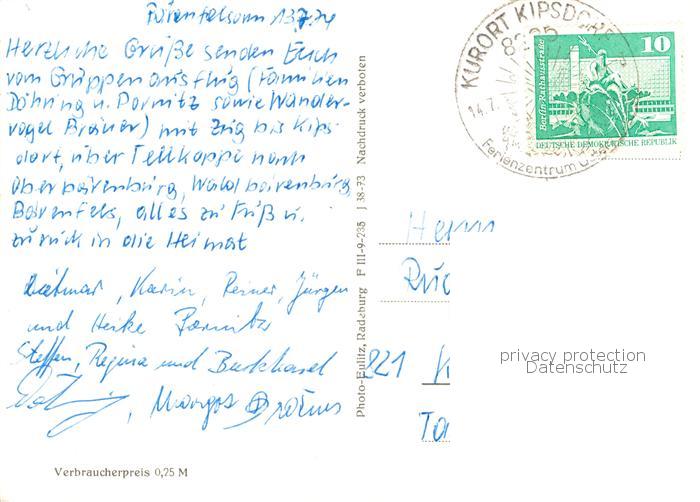 Bärenfels am 13.7.74
Herzliche Grüße senden Euch
vom Gruppenausflug (Familien
Döhring u. Pornitz sowie Wander-
vogel Bräuer) mit Zug bis Kips
dorf, über Tellkoppe nach
Oberbärenburg, Waldbärenburg
Bärenfels, alles zu Fuß u.
zurück in die Heimat
Dietmar, Karin, Reiner, Jürgen
und Heike Pornitz
Steffen, Regina und Burkhard
Margot Bräuer
Verbraucherpreis 0,75 M
Photo-Eulitz, Radeburg F III-9-235 J 38-73 Nachdruck verboten
KURORT KIPSDORF
14.7.
Ferienzentrum
10
Berlin, Rathausstraße
DEUTSCHE DEMOKRATISCHE REPUBLIK
Herrn
221
privacy protection
Datenschutz